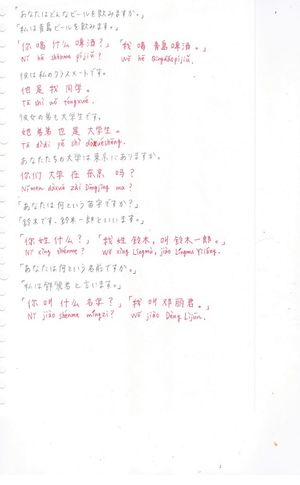 「あなたはどんなビールを飲みますか。」
「私は青島ビールを飲みます。」
「你喝什么啤酒？」「我喝青島啤酒。」
Nǐ hē shénme píjiǔ? Wǒ hē Qīngdǎopíjiǔ.
彼は私のクラスメートです。
他是我同学。
Tā shì wǒ tóngxué.
彼女の弟も大学生です。
她弟弟也是大学生。
Tā dìdi yě shì dàxuéshēng.
あなたたちの大学は東京にありますか。
你们大学在东京吗？
Nǐmen dàxué zài Dōngjīng ma?
「あなたは何という苗字ですか？」
「鈴木です。鈴木一郎といいます。」
「你姓什么？」「我姓铃木，叫铃木一郎。」
Nǐ xìng shénme? Wǒ xìng Língmù, jiào Língmù Yīláng.
「あなたは何という名前ですか。」
「私は鄧麗君と言います。」
「你叫什么名字？」「我叫邓丽君。」
Nǐ jiào shénme míngzi? Wǒ jiào Dèng Lìjūn.